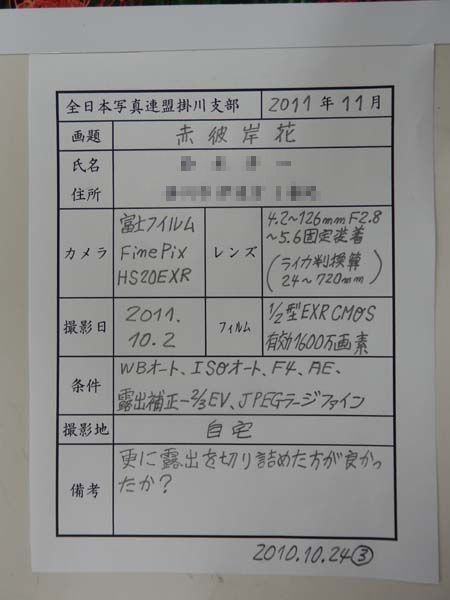 全日本写真連盟掛川支部 2011年11月
画題 赤彼岸花
氏名
住所
カメラ 富士フイルム
FinePix
HS20EXR
レンズ 4.2~126mm F2.8
~5.6固定装着
(ライカ判換算
24~720mm)
撮影日 2011.
10.2
フィルム 1/2型EXR CMOS
有効1600万画素
条件 WBオート、ISOオート、F4、AE、
露出補正-2/3EV、JPEGラージファイン
撮影地 自宅
備考 更に露出を切り詰めた方が良かっ
たか?
2010.10.24③